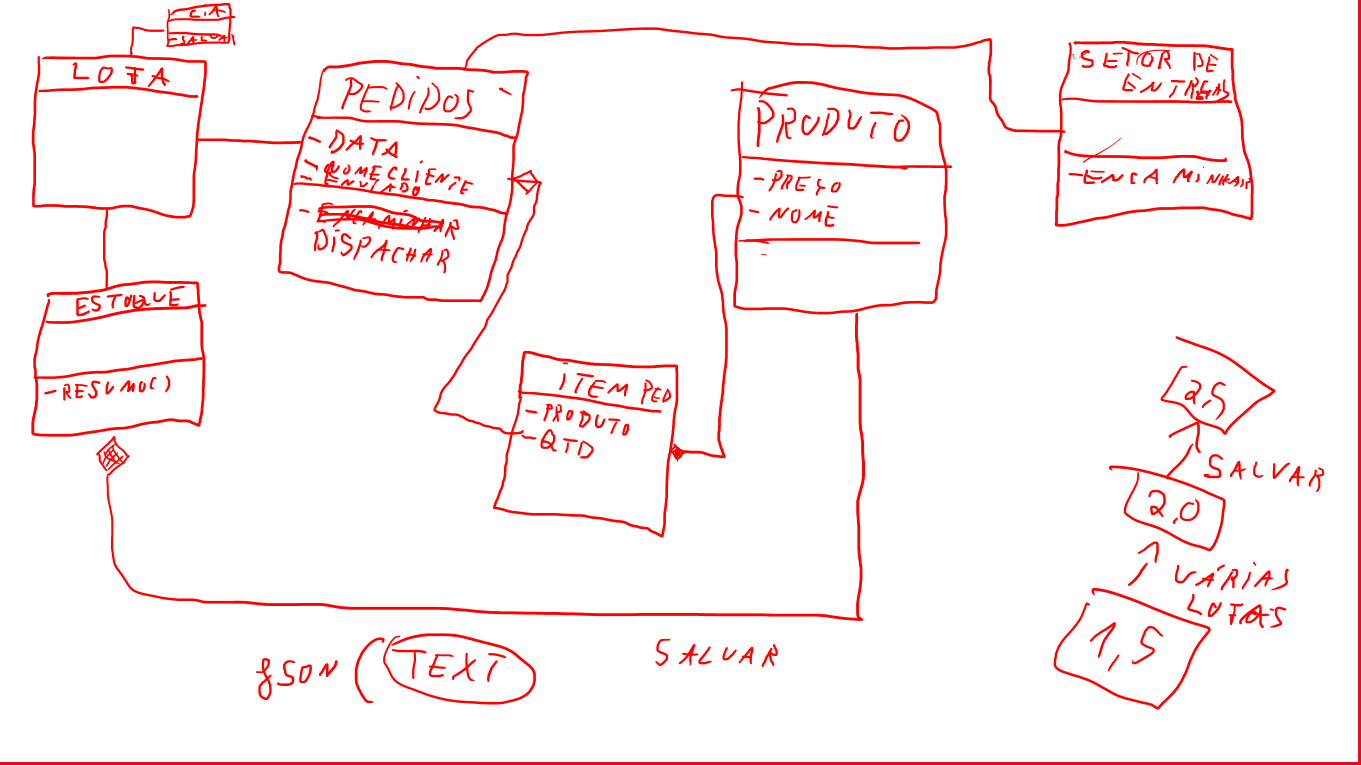 CIA
LOJA
PEDIDOS
- DATA
- NOMECLIENTE
- ENVIADO
- ENCAMINHAR
DISPACHAR
PRODUTO
- PREÇO
- NOME
SETOR DE
ENTREGAS
- ENCAMINHAR
ESTOQUE
- RESUMO()
ITEM PED
- PRODUTO
- QTD
2,5
SALVAR
2,0
VÁRIAS
LOJAS
1,5
JSON (TEXT
SALVAR